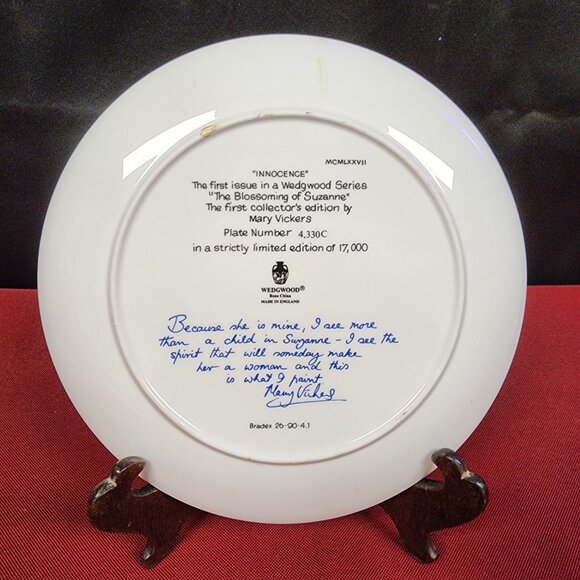 MCMLXXVII
"INNOCENCE"
The first issue in a Wedgwood Series
"The Blossoming of Suzanne"
The first collector's edition by
Mary Vickers
Plate Number 4,330C
in a strictly limited edition of 17,000
WEDGWOOD®
Bone China
MADE IN ENGLAND
Because she is mine, I see more
than a child in Suzanne - I see the
spirit that will someday make
her a woman and this
is what I paint
Mary Vickers
Bradex 26-90-4.1